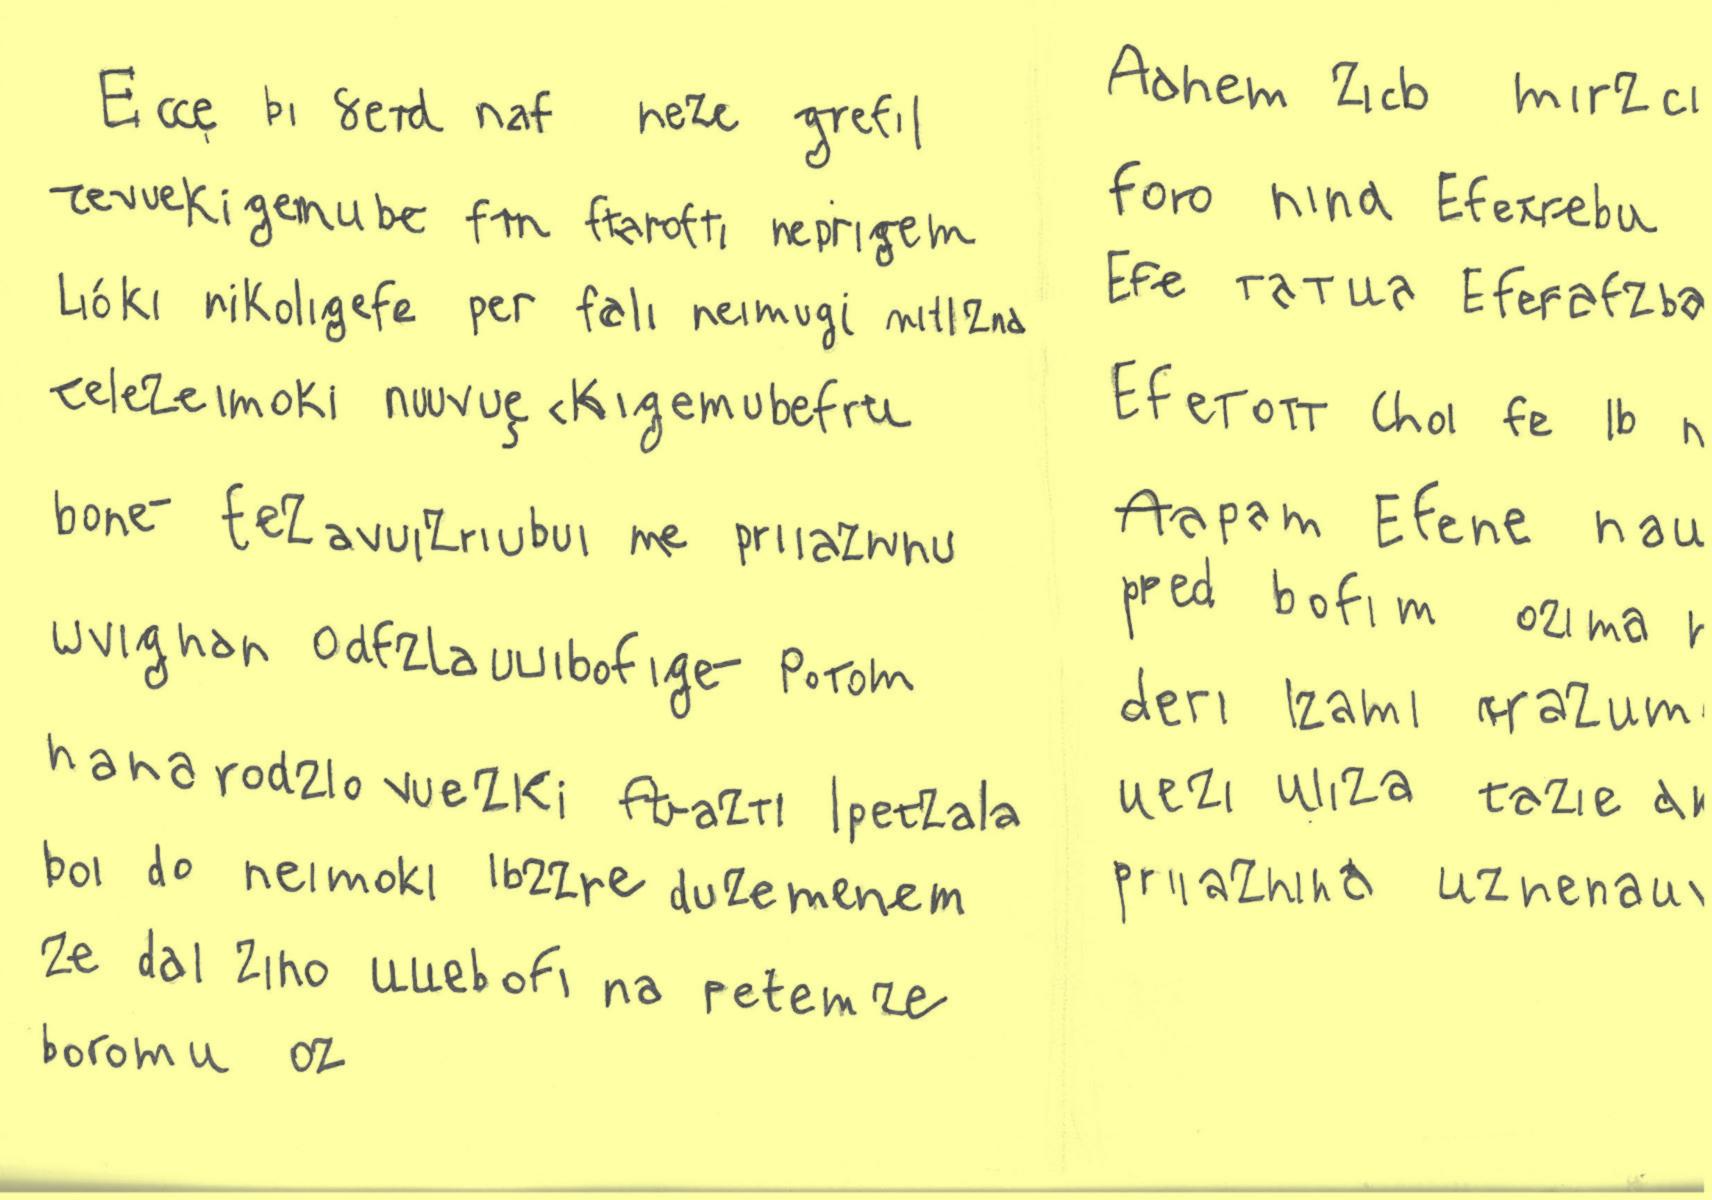 Eccę bi detd naf neze grefil
tevuekigemube fm ftarofti neprigem
Liókı nikoligefe per fali neimugi mitlizna
telezeimoki nuuvuę ckigemubefru
bone- tezavuizriubui me priiaznnu
uvighan Odfzlauuibofige- Potom
nanarodzlo vuezki ftrazti Ipetzala
boi do neimoki Ibzzre duzemenem
ze dai zino uuebofi na petemze
boromu oz
Adhem Zicb mirzci
foro nind Efexrebu
Efe tatua Eferafzba
Efetott Chol fe Ib n
Aapam Efene nau
pred bofim ozima
deri Izami razum
uezi uliza tazie an
priiaznina uznenau